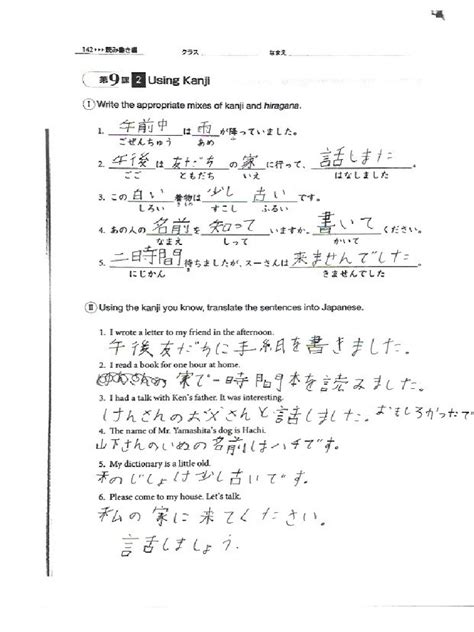 142▸▸▸読み書き編 クラス なまえ
第9課 2 Using Kanji
Ⅰ Write the appropriate mixes of kanji and hiragana.
1. 午前中は雨が降っていました。
ごぜんちゅう あめ
2. 午後は友だちの家に行って、話しました。
ごご ともだち いえ はなしました
3. この白い着物は少し古いです。
しろい きもの すこし ふるい
4. あの人の名前を知っていますか。書いてください。
なまえ しって かいて
5. 二時間待ちましたが、スーさんは来ませんでした。
にじかん きませんでした
Ⅱ Using the kanji you know, translate the sentences into Japanese.
1. I wrote a letter to my friend in the afternoon.
午後友だちに手紙を書きました。
2. I read a book for one hour at home.
家で一時間本を読みました。
3. I had a talk with Ken's father. It was interesting.
けんさんのお父さんと話しました。おもしろかったで
4. The name of Mr. Yamashita's dog is Hachi.
山下さんのいぬの名前はハチです。
5. My dictionary is a little old.
私のじしょは少し古いです。
6. Please come to my house. Let's talk.
私の家に来てください。
話しましょう。